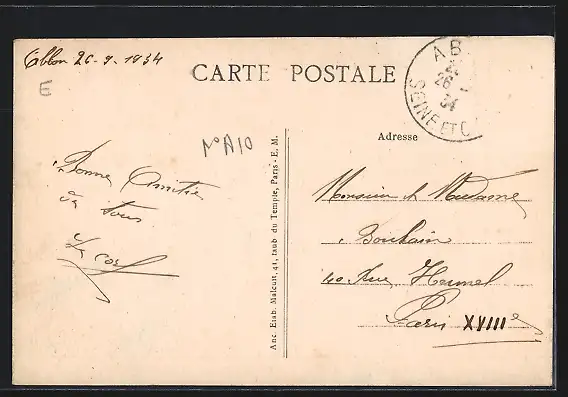 Ablon 26-9-1934
E
CARTE POSTALE
AB
26
34
SEINE ET O
N° A10
Adresse
Bonne Amitié
à tous
Anc. Etab. Malcuit, 41, faub. du Temple, Paris - E. M.
Monsieur & Madame
40 Rue Hermel
Paris XVIIIe